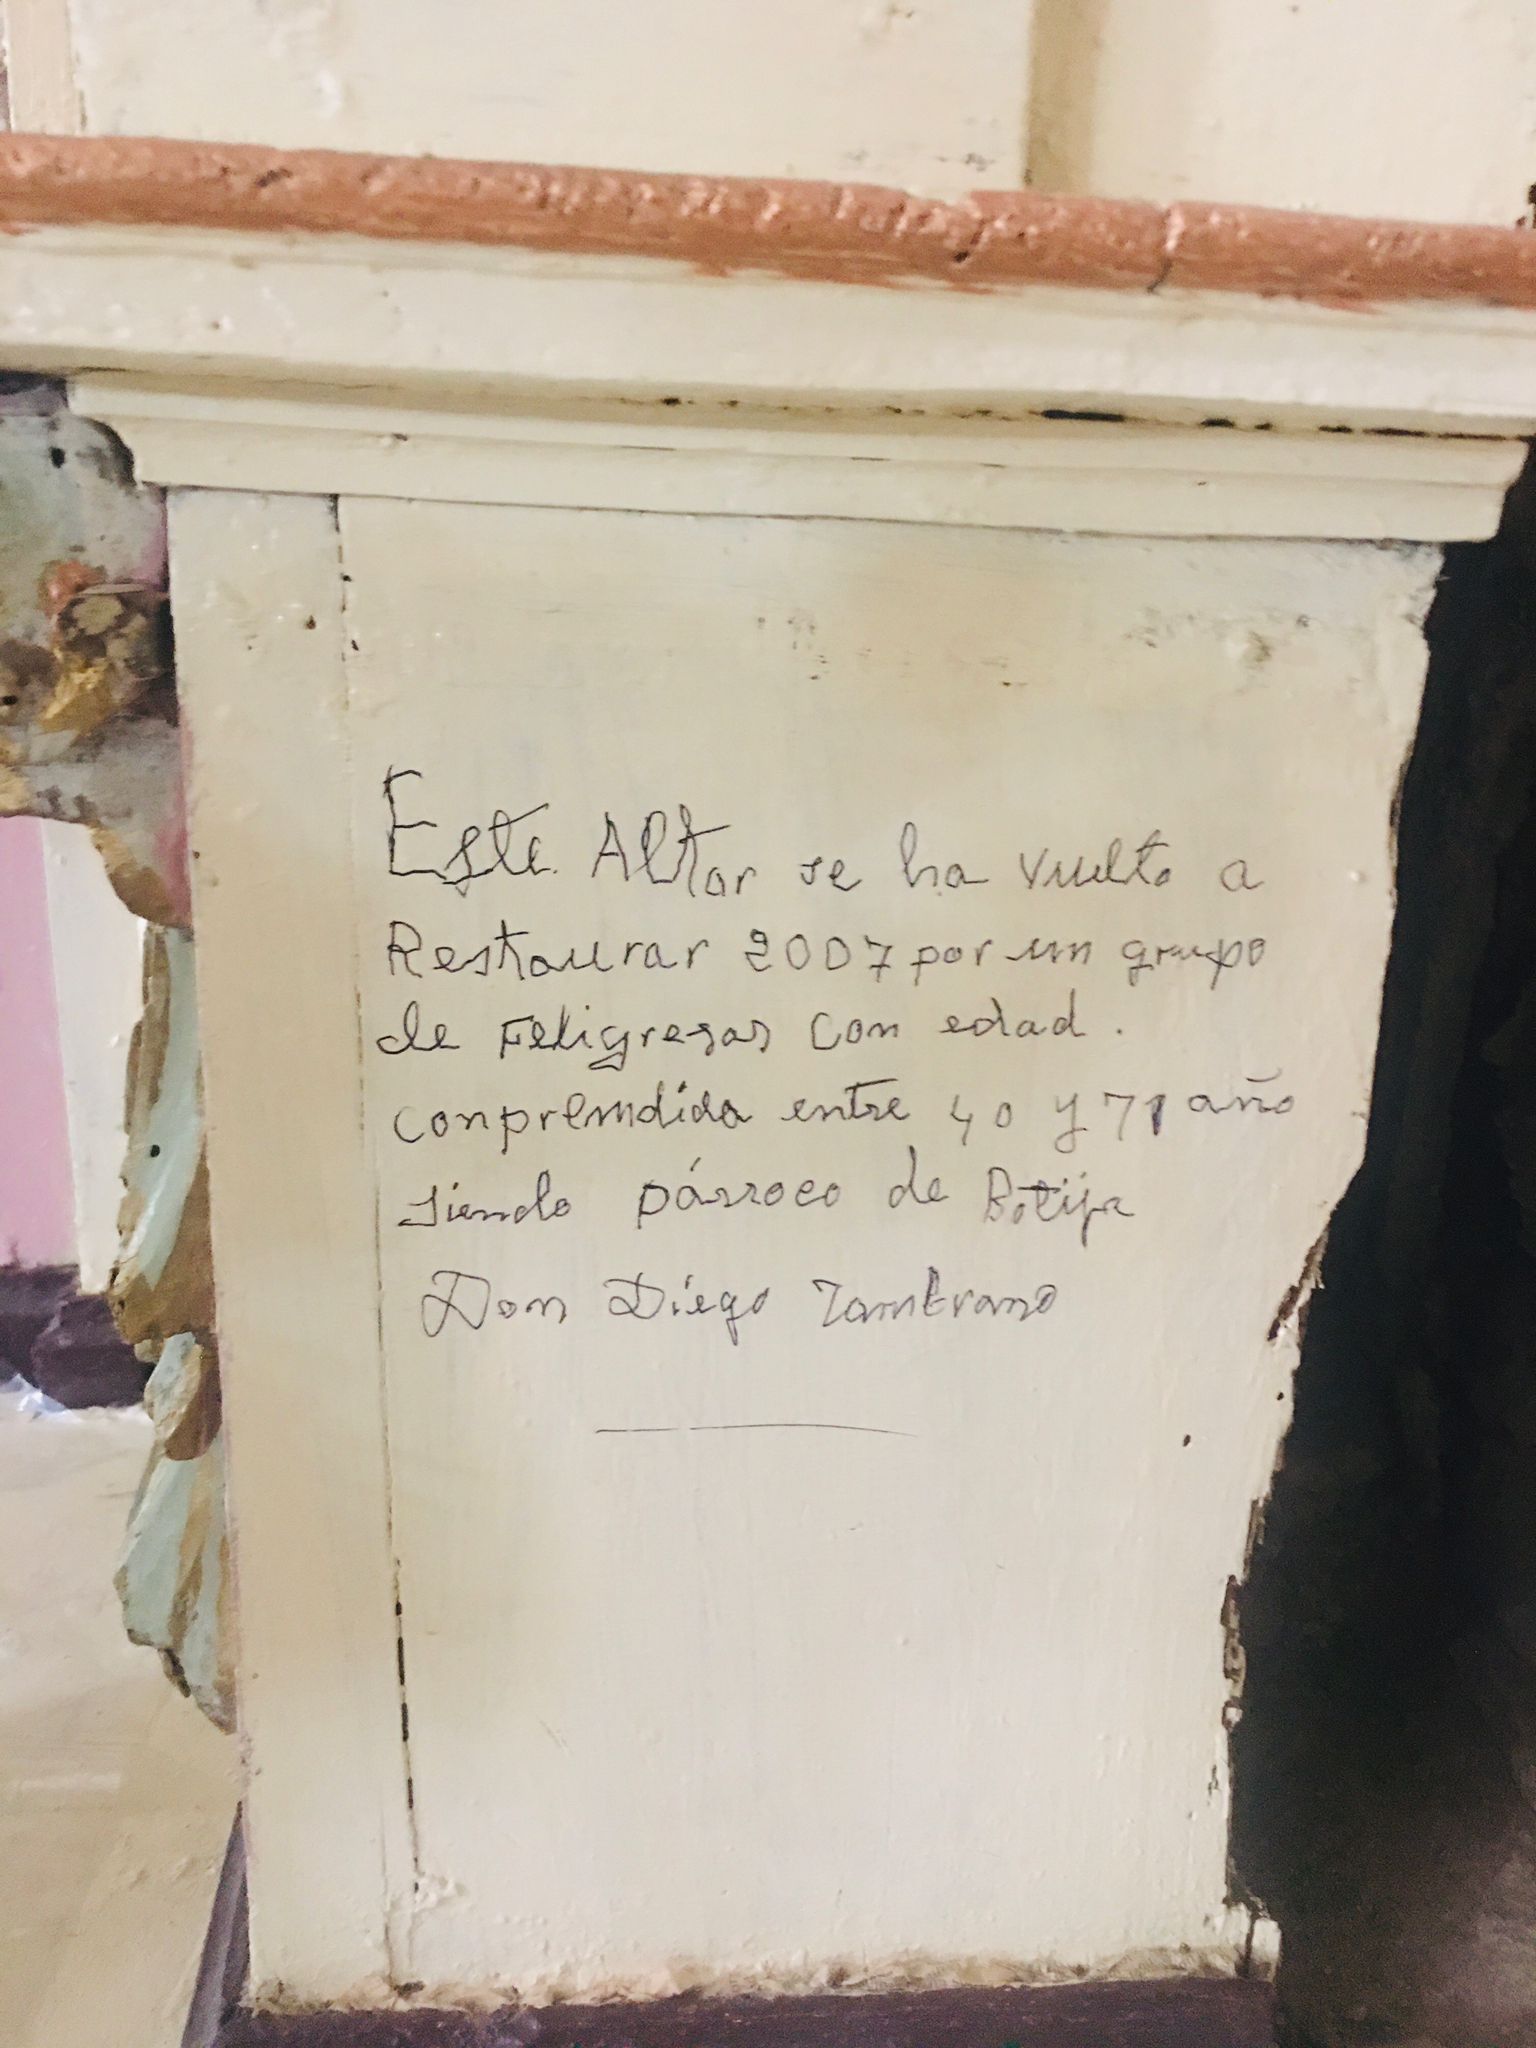 Este Altar se ha vuelto a
Restaurar 2007 por un grupo
de Feligresas con edad.
conprendida entre 40 y 71 año
siendo párroco de Botija
Don Diego Zambrano